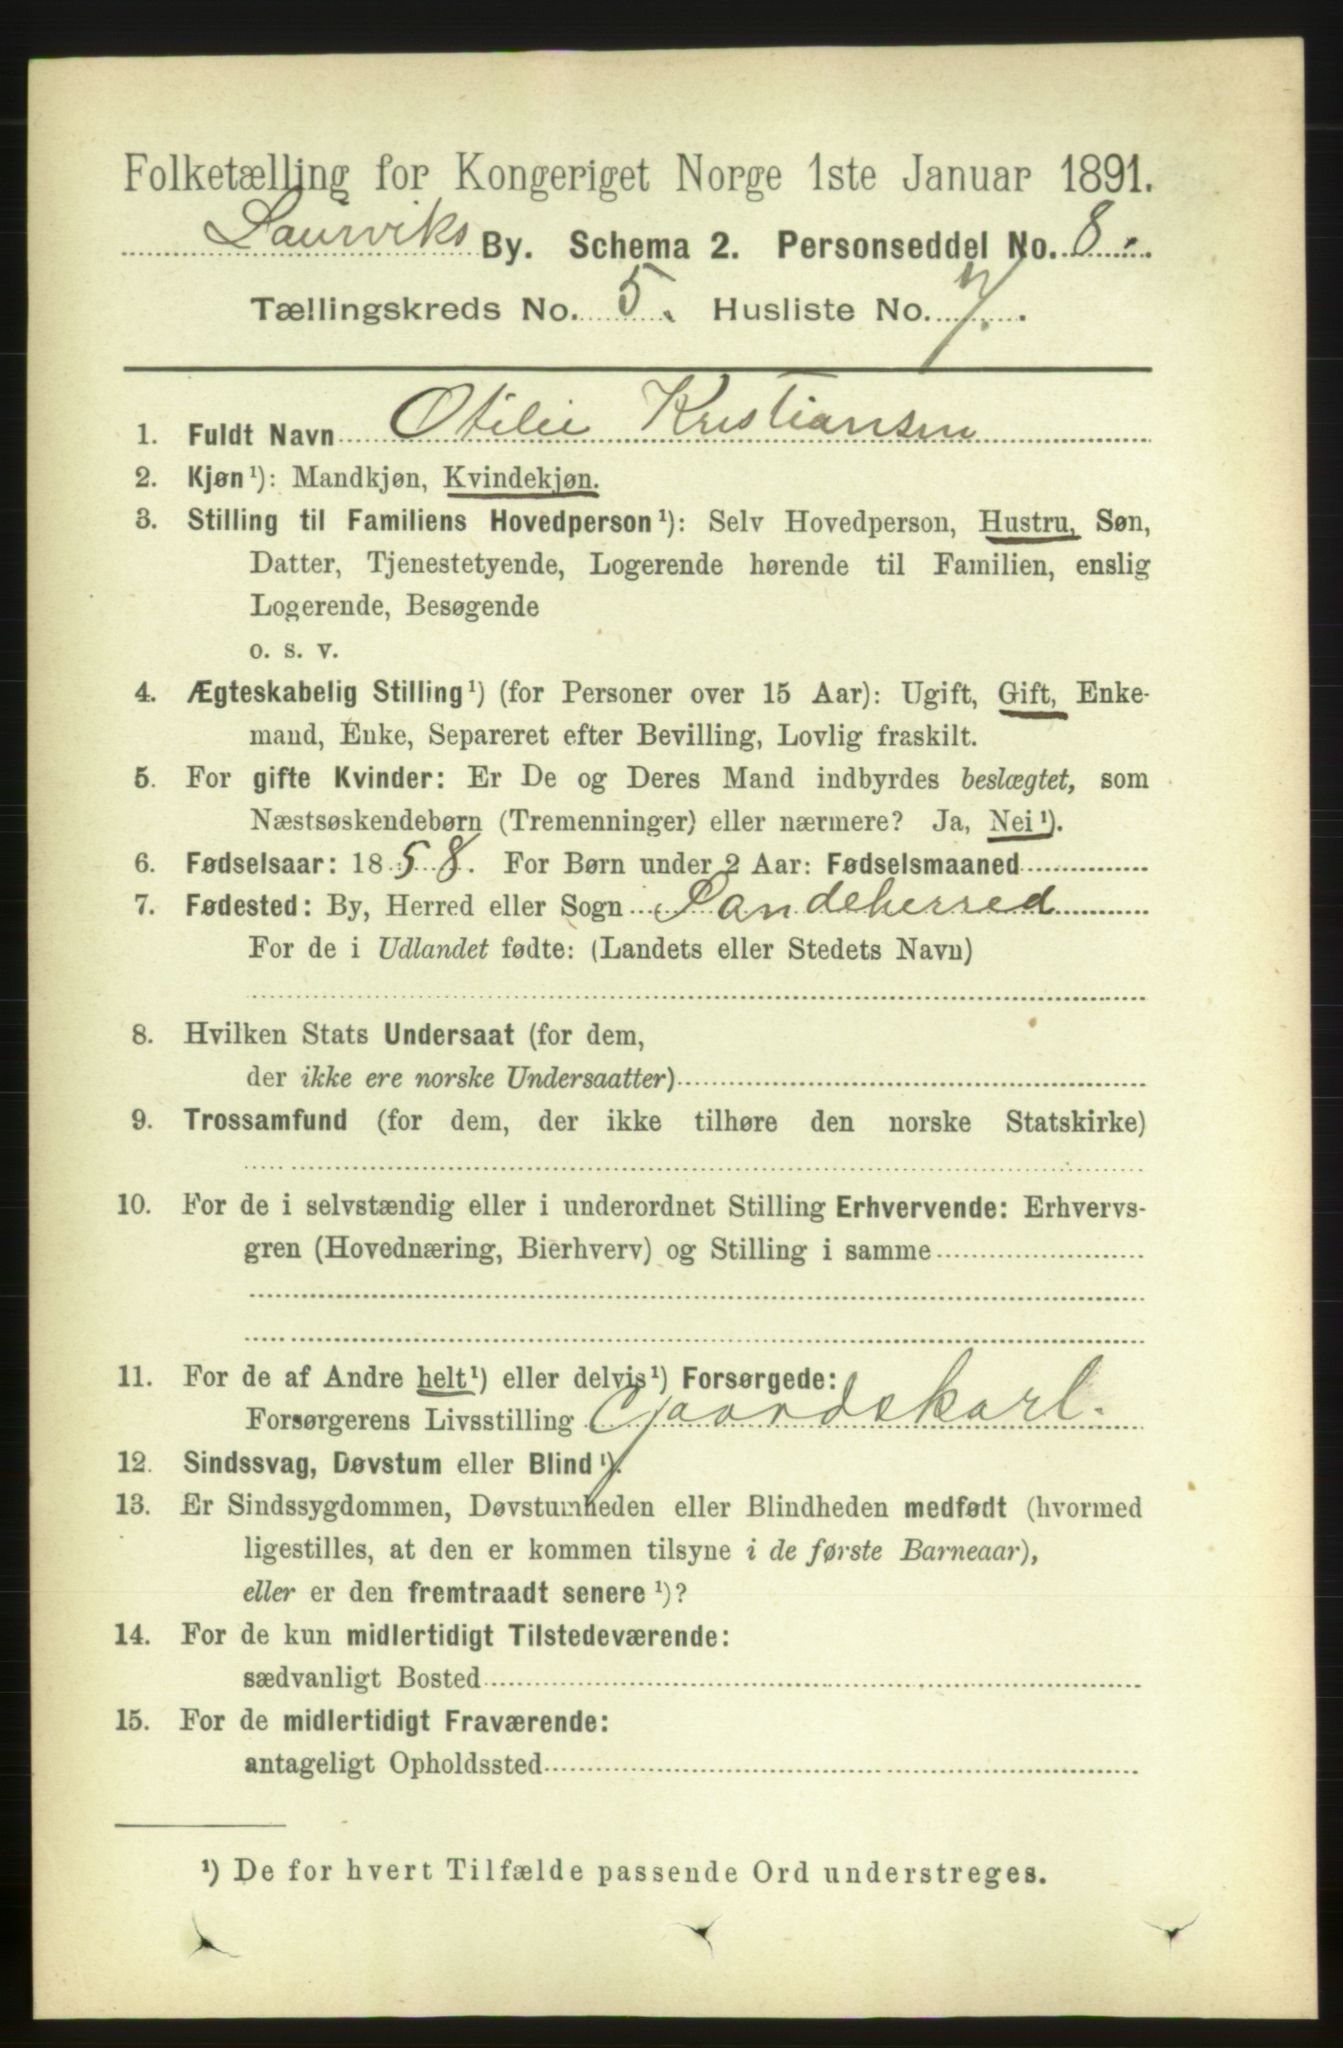 Folketælling for Kongeriget Norge 1ste Januar 1891.
Laurviks By. Schema 2. Personseddel No. 8.
Tællingskreds No. 5. Husliste No. 7.
1. Fuldt Navn Otilie Kristiansen
2. Kjøn¹): Mandkjøn, Kvindekjøn.
3. Stilling til Familiens Hovedperson¹): Selv Hovedperson, Hustru, Søn,
Datter, Tjenestetyende, Logerende hørende til Familien, enslig
Logerende, Besøgende
o. s. v.
4. Ægteskabelig Stilling¹) (for Personer over 15 Aar): Ugift, Gift, Enke-
mand, Enke, Separeret efter Bevilling, Lovlig fraskilt.
5. For gifte Kvinder: Er De og Deres Mand indbyrdes beslægtet, som
Næstsøskendebørn (Tremenninger) eller nærmere? Ja, Nei¹).
6. Fødselsaar: 1858. For Børn under 2 Aar: Fødselsmaaned
7. Fødested: By, Herred eller Sogn Sandeherred
For de i Udlandet fødte: (Landets eller Stedets Navn)
8. Hvilken Stats Undersaat (for dem,
der ikke ere norske Undersaatter)
9. Trossamfund (for dem, der ikke tilhøre den norske Statskirke)
10. For de i selvstændig eller i underordnet Stilling Erhvervende: Erhvervs-
gren (Hovednæring, Bierhverv) og Stilling i samme
11. For de af Andre helt¹) eller delvis¹) Forsørgede:
Forsørgerens Livsstilling Gaardskarl.
12. Sindssvag, Døvstum eller Blind¹).
13. Er Sindssygdommen, Døvstumheden eller Blindheden medfødt (hvormed
ligestilles, at den er kommen tilsyne i de første Barneaar),
eller er den fremtraadt senere¹)?
14. For de kun midlertidigt Tilstedeværende:
sædvanligt Bosted
15. For de midlertidigt Fraværende:
antageligt Opholdssted
¹) De for hvert Tilfælde passende Ord understreges.